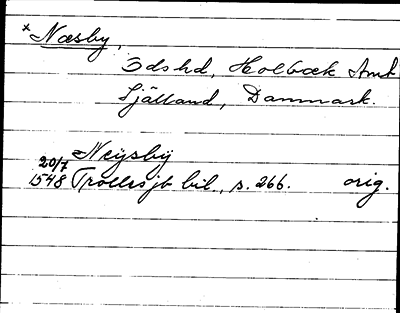 * Næsby,
Odshd, Holbæk Amt
Sjælland, Danmark.
Neÿsbÿ
20/7
1548 Trollesjb bil, s. 266. orig.